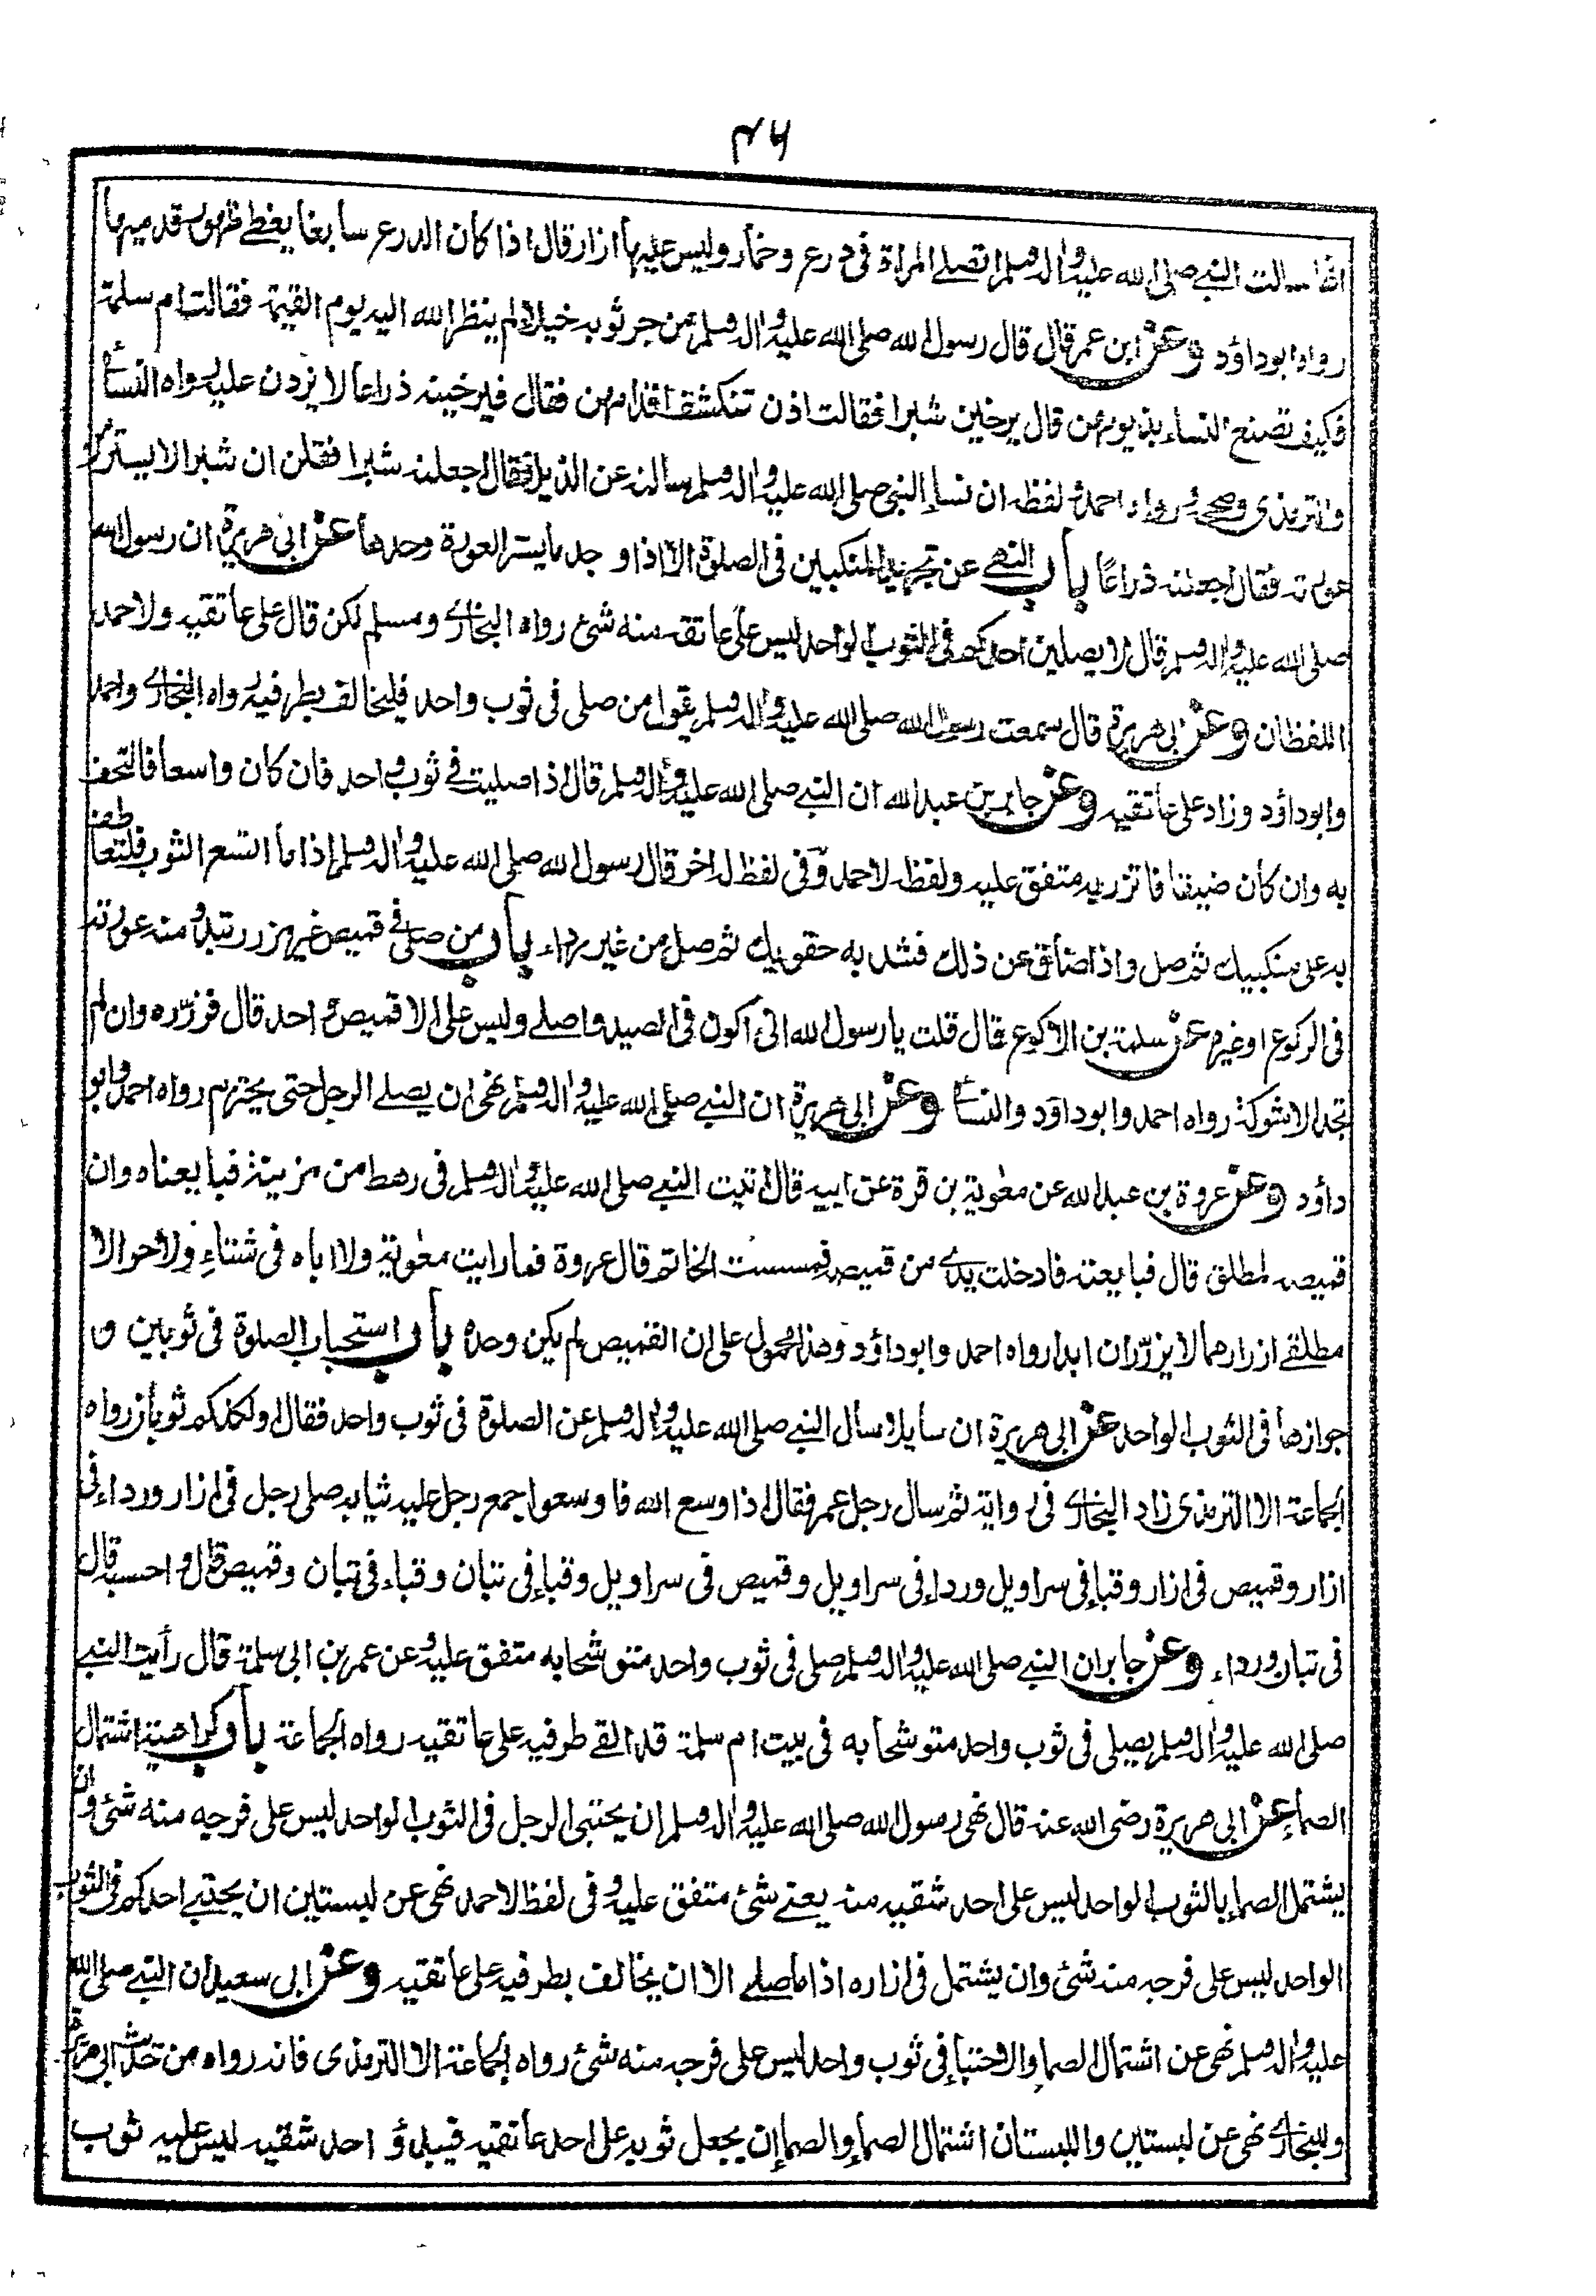 ٤٦
انها سالت النبي صلى الله عليه واله وسلم اتصلے المراة فی درع وخمار وليس عليها ازار قال اذا كان الدرع سابغا يغطے ظهور قدميها
رواه ابوداؤد وعن ابن عمر قال قال رسول الله صلى الله عليه واله وسلم من جر ثوبه خيلاء لم ينظر الله اليه يوم القيمة فقالت ام سلمة
فكيف تصنع النساء بذيولهن قال يرخين شبرا فقالت اذن تنكشف اقدامهن فقال فيرخينه ذراعا لا يزدن عليه رواه النسائے
والترمذی وصححه ورواه احمد ولفظه ان نساء النبی صلى الله عليه واله وسلم سالنه عن الذيل فقال اجعلنه شبرا فقلن ان شبرا لا يستر من
عورته فقال اجعلنه ذراعًا باب النهے عن تجريد المنكبين فی الصلوة الا اذا وجد ما يستر العورة وحدها عن ابی هريرة ان رسول الله
صلى الله عليه واله وسلم قال لا يصلين احدكم فی الثوب الواحد ليس على عاتقه منه شئ رواه البخارے ومسلم لكن قال على عاتقيه ولاحمد
اللفظان وعن ابی هريرة قال سمعت رسول الله صلى الله عليه واله وسلم يقول من صلى فی ثوب واحد فليخالف بطرفيه رواه البخارے واحمد
وابوداؤد وزاد على عاتقيه وعن جابر بن عبد الله ان النبے صلى الله عليه واله وسلم قال اذا صليت فے ثوب واحد فان كان واسعا فالتحف
به وان كان ضيقا فاتزر به متفق عليه ولفظه لاحمد وفی لفظ له اخر قال رسول الله صلى الله عليه واله وسلم اذا ما اتسع الثوب فلتعاطف
به على منكبيك ثم صل واذا ضاق عن ذلك فشد به حقويك ثم صل من غير رداء باب من صلى فے قميص غير مزرر تبدو منه عورته
فی الركوع اوغيره عن سلمة بن الاكوع قال قلت يا رسول الله انی اكون فی الصيد واصلے وليس على الا قميص واحد قال فزرّه وان لم
تجد الا شوكة رواه احمد وابوداؤد والنسائے وعن ابی هريرة ان النبے صلى الله عليه واله وسلم نهى ان يصلے الرجل حتى يحتزم رواه احمد وابو
داؤد وعن عروة بن عبد الله عن معوية بن قرة عن ابيه قال اتيت النبے صلى الله عليه واله وسلم فی رهط من مزينة فبايعناه وان
قميصه لمطلق قال فبايعته فادخلت يدے من قميصه فمسست الخاتم قال عروة فما رايت معوية ولا اباه فی شتاء ولا حر الا
مطلقے ازرارهما لا يزرّران ابدا رواه احمد وابوداؤد وهذا محمول على ان القميص لم يكن وحده باب استحباب الصلوة فی ثوبين و
جوازها فی الثوب الواحد عن ابی هريرة ان سايلا سأل النبے صلى الله عليه واله وسلم عن الصلوة فی ثوب واحد فقال اولكلكم ثوبان رواه
الجماعة الا الترمذی زاد البخارے فی رواية ثم سال رجل عمر فقال اذا وسع الله فاوسعوا جمع رجل عليه ثيابه صلى رجل فی ازار ورداء فی
ازار وقميص فی ازار وقباء فی سراويل ورداء فی سراويل وقميص فی سراويل وقباء فی تبان وقباء فی تبان وقميص قال واحسبه قال
فی تبان ورداء وعن جابر ان النبے صلى الله عليه واله وسلم صلى فی ثوب واحد متوشحا به متفق عليه وعن عمر بن ابی سلمة قال رأيت النبے
صلى الله عليه واله وسلم يصلی فی ثوب واحد متوشحا به فی بيت ام سلمة قد القے طرفيه على عاتقيه رواه الجماعة باب كراهية اشتمال
الصماء عن ابی هريرة رضی الله عنه قال نهى رسول الله صلى الله عليه واله وسلم ان يحتبی الرجل فی الثوب الواحد ليس على فرجه منه شئ وان
يشتمل الصماء بالثوب الواحد ليس على احد شقيه منه يعنے شئ متفق عليه وفی لفظ لاحمد نهى عن لبستين ان يحتبے احدكم فی الثوب
الواحد ليس على فرجه منه شئ وان يشتمل فی ازاره اذا ما صلے الا ان يخالف بطرفيه على عاتقيه وعن ابی سعيد ان النبے صلى الله
عليه واله وسلم نهى عن اشتمال الصماء والاحتباء فی ثوب واحد ليس على فرجه منه شئ رواه الجماعة الا الترمذی فانه رواه من حديث ابی هريرة
وللبخارے نهى عن لبستين واللبستان اشتمال الصماء والصماء ان يجعل ثوبه على احد عاتقيه فيبدؤ احد شقيه ليس عليه ثوب